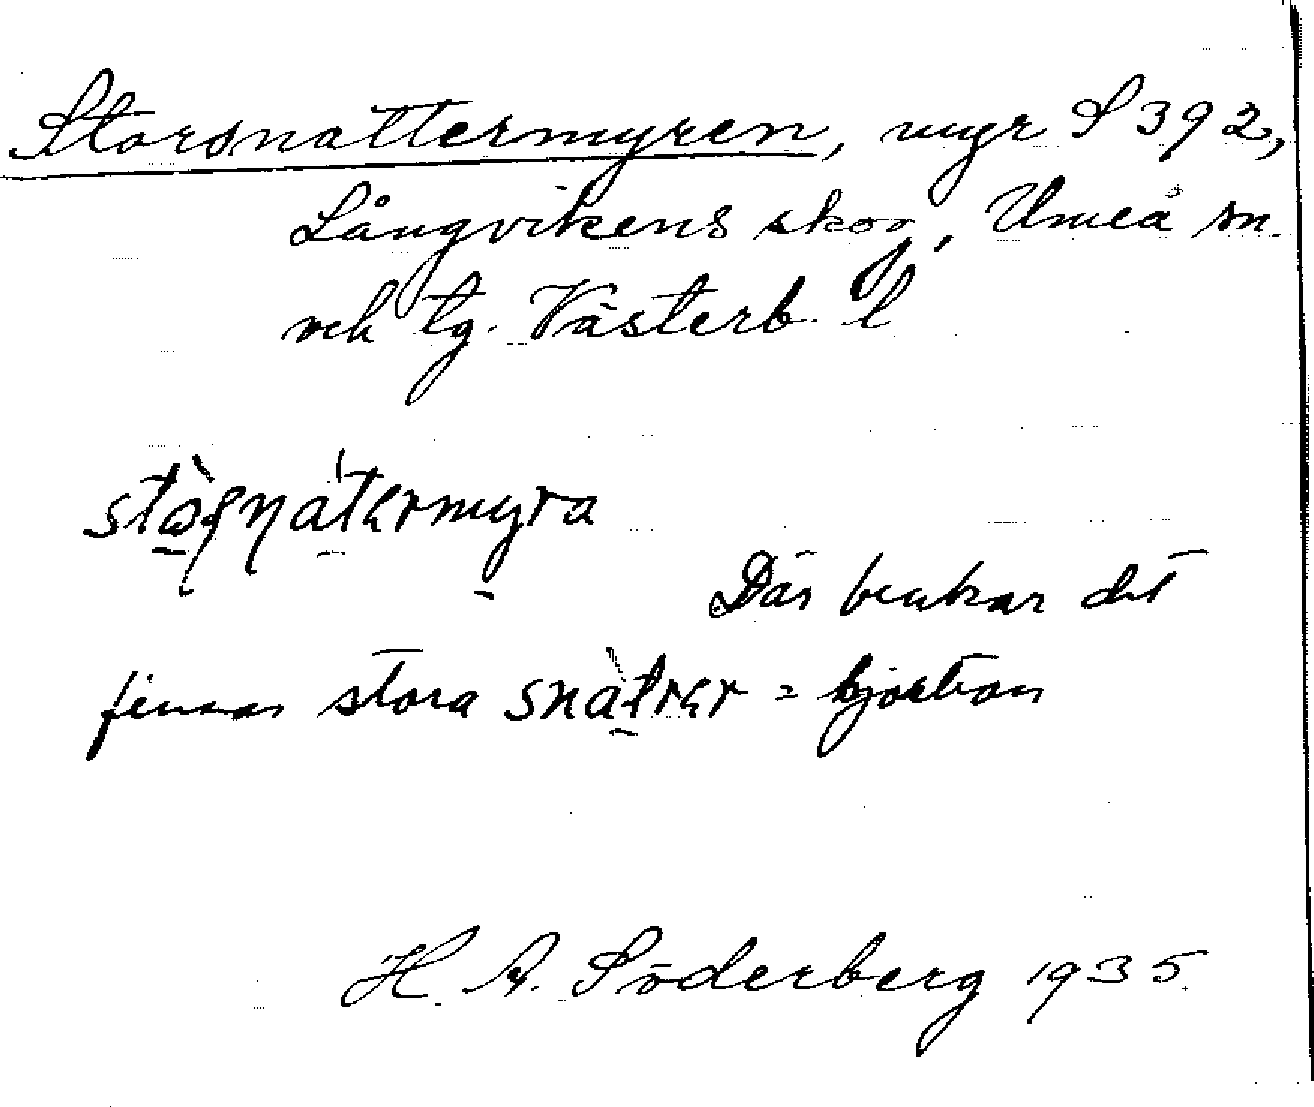 Storsnattermyren, myr S 392,
Långvikens skog, Umeå sn.
och tg. Västerb. l
Där brukar det
finnas stora snàtrer = hjortron
H. A. Söderberg 1935.